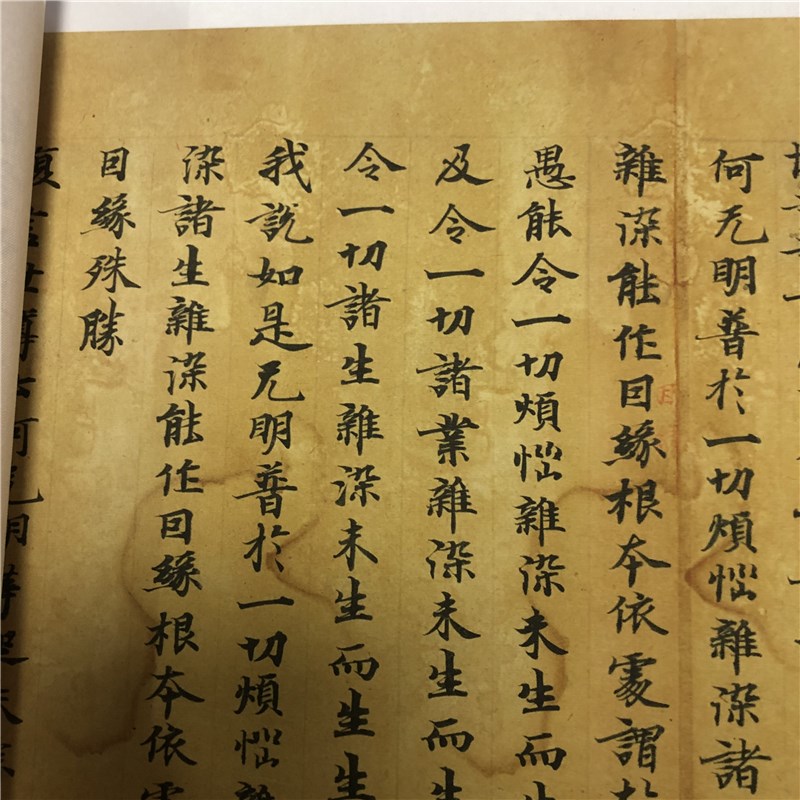 何无明普於一切煩惱雜染諸
雜染能作因緣根本依處謂於
愚能令一切煩惱雜染未生而生
及令一切諸業雜染未生而生
令一切諸生雜染未生而生生
我說如是无明普於一切煩惱雜
染諸生雜染能作因緣根本依處
因緣殊勝